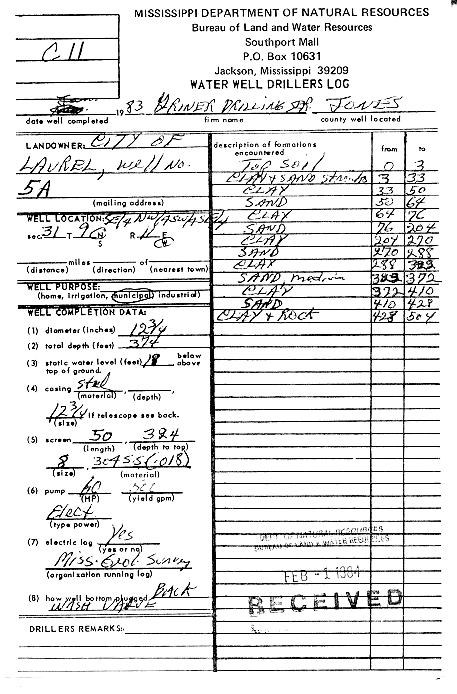 MISSISSIPPI DEPARTMENT OF NATURAL RESOURCES
Bureau of Land and Water Resources
Southport Mall
P.O. Box 10631
Jackson, Mississippi 39209
WATER WELL DRILLERS LOG
C 11
1983 GRINER DRILLING JONES
date well completed firm name county well located
LANDOWNER: CITY OF
LAUREL, Well No.
5A
(mailing address)
WELL LOCATION: SE/4 NW/4 SW/4
sec 31 T 9 N S R 11 E W
miles of
(distance) (direction) (nearest town)
WELL PURPOSE:
(home, irrigation, municipal, industrial)
WELL COMPLETION DATA:
(1) diameter (inches) 12 3/4
(2) total depth (feet) 374
(3) static water level (feet) 18 below above
top of ground.
(4) casing Steel
(material) (depth)
12 3/4 If telescope see back.
(size)
(5) screen 50 324
(length) (depth to top)
8 304 SS (.018)
(size) (material)
(6) pump 60
(HP) (yield gpm)
Elect
(type power)
(7) electric log Yes
(yes or no)
Miss. Geol. Survey
(organization running log)
(8) how well bottom plugged BACK
WASH VALVE
DRILLERS REMARKS:
description of formations encountered from to
Top Soil 0 3
CLAY & SAND Streaks 3 33
CLAY 33 50
SAND 50 64
CLAY 64 76
SAND 76 204
CLAY 204 270
SAND 270 288
CLAY 288
SAND medium 372
CLAY 372 410
SAND 410 428
CLAY & ROCK 428 504
DEPT OF NATURAL RESOURCES
BUREAU OF LAND & WATER RESOURCES
FEB -1 1984
RECEIVED